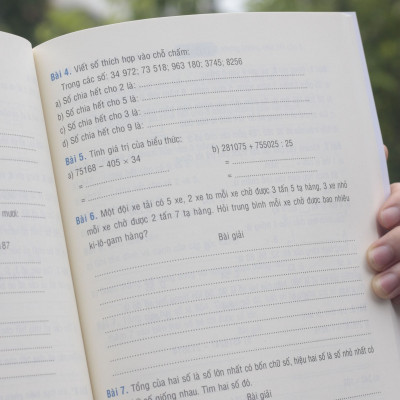 Bài 4. Viết số thích hợp vào chỗ chấm:
Trong các số: 34 972; 73 518; 963 180; 3745; 8256
a) Số chia hết cho 2 là:
b) Số chia hết cho 5 là:
c) Số chia hết cho 3 là:
d) Số chia hết cho 9 là:
Bài 5. Tính giá trị của biểu thức:
a) 75168 – 405 × 34 b) 281075 + 755025 : 25
= =
= =
Bài 6. Một đội xe tải có 5 xe, 2 xe to mỗi xe chở được 3 tấn 5 tạ hàng, 3 xe nhỏ
mỗi xe chở được 2 tấn 7 tạ hàng. Hỏi trung bình mỗi xe chở được bao nhiêu
ki-lô-gam hàng?
Bài giải
mươi:
187
Bài 7. Tổng của hai số là số lớn nhất có bốn chữ số, hiệu hai số là số nhỏ nhất có
số giống nhau. Tìm hai số đó.
Bài giải